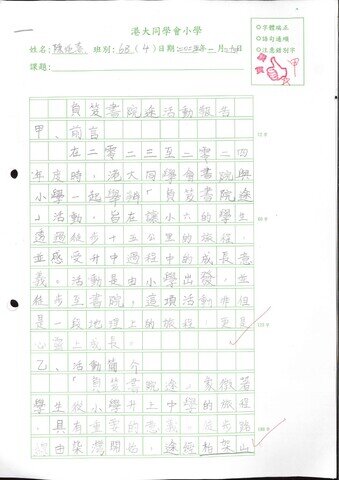 一
港大同學會小學
姓名: 班別: 6B (4) 日期:
課題:
◎字體端正
◎語句通順
◎注意錯別字
負笈書院途活動報告
甲、前言
在二零二三至二零二四
年度時，港大同學會書院與
小學一起舉辦「負笈書院途
」活動，旨在讓小六的學生
透過徒步十五公里的旅程
並感受升中過程中的成長意
義。活動是由小學出發，並
徒步至書院，這項活動非但
是一段地理上的旅程，更是
心靈上成長。
乙、活動簡介
「負笈書院途」象徵著
學生從小學升上中學的旅程
，具有重要的意義。徒步路
線由柴灣開始，途經柏架山